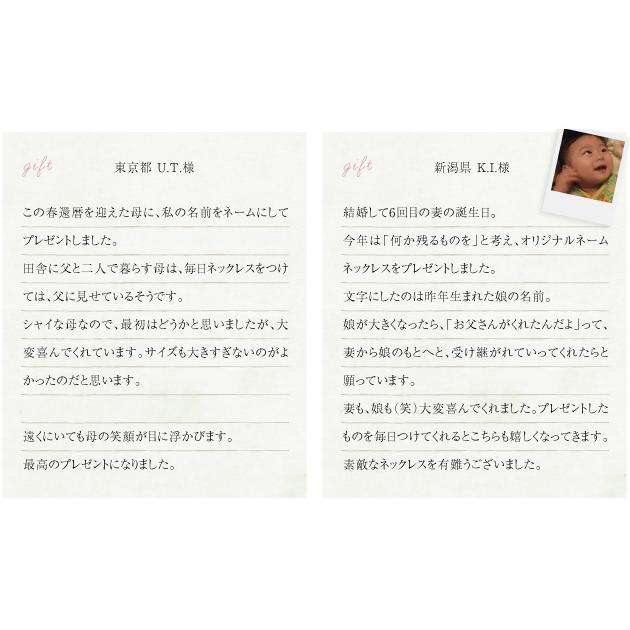 gift
東京都 U.T.様
この春還暦を迎えた母に、私の名前をネームにして
プレゼントしました。
田舎に父と二人で暮らす母は、毎日ネックレスをつけ
ては、父に見せているそうです。
シャイな母なので、最初はどうかと思いましたが、大
変喜んでくれています。サイズも大きすぎないのがよ
かったのだと思います。
遠くにいても母の笑顔が目に浮かびます。
最高のプレゼントになりました。
gift
新潟県 K.I.様
結婚して6回目の妻の誕生日。
今年は「何か残るものを」と考え、オリジナルネーム
ネックレスをプレゼントしました。
文字にしたのは昨年生まれた娘の名前。
娘が大きくなったら、「お父さんがくれたんだよ」って、
妻から娘のもとへと、受け継がれていってくれたらと
願っています。
妻も、娘も(笑)大変喜んでくれました。プレゼントした
ものを毎日つけてくれるとこちらも嬉しくなってきます。
素敵なネックレスを有難うございました。